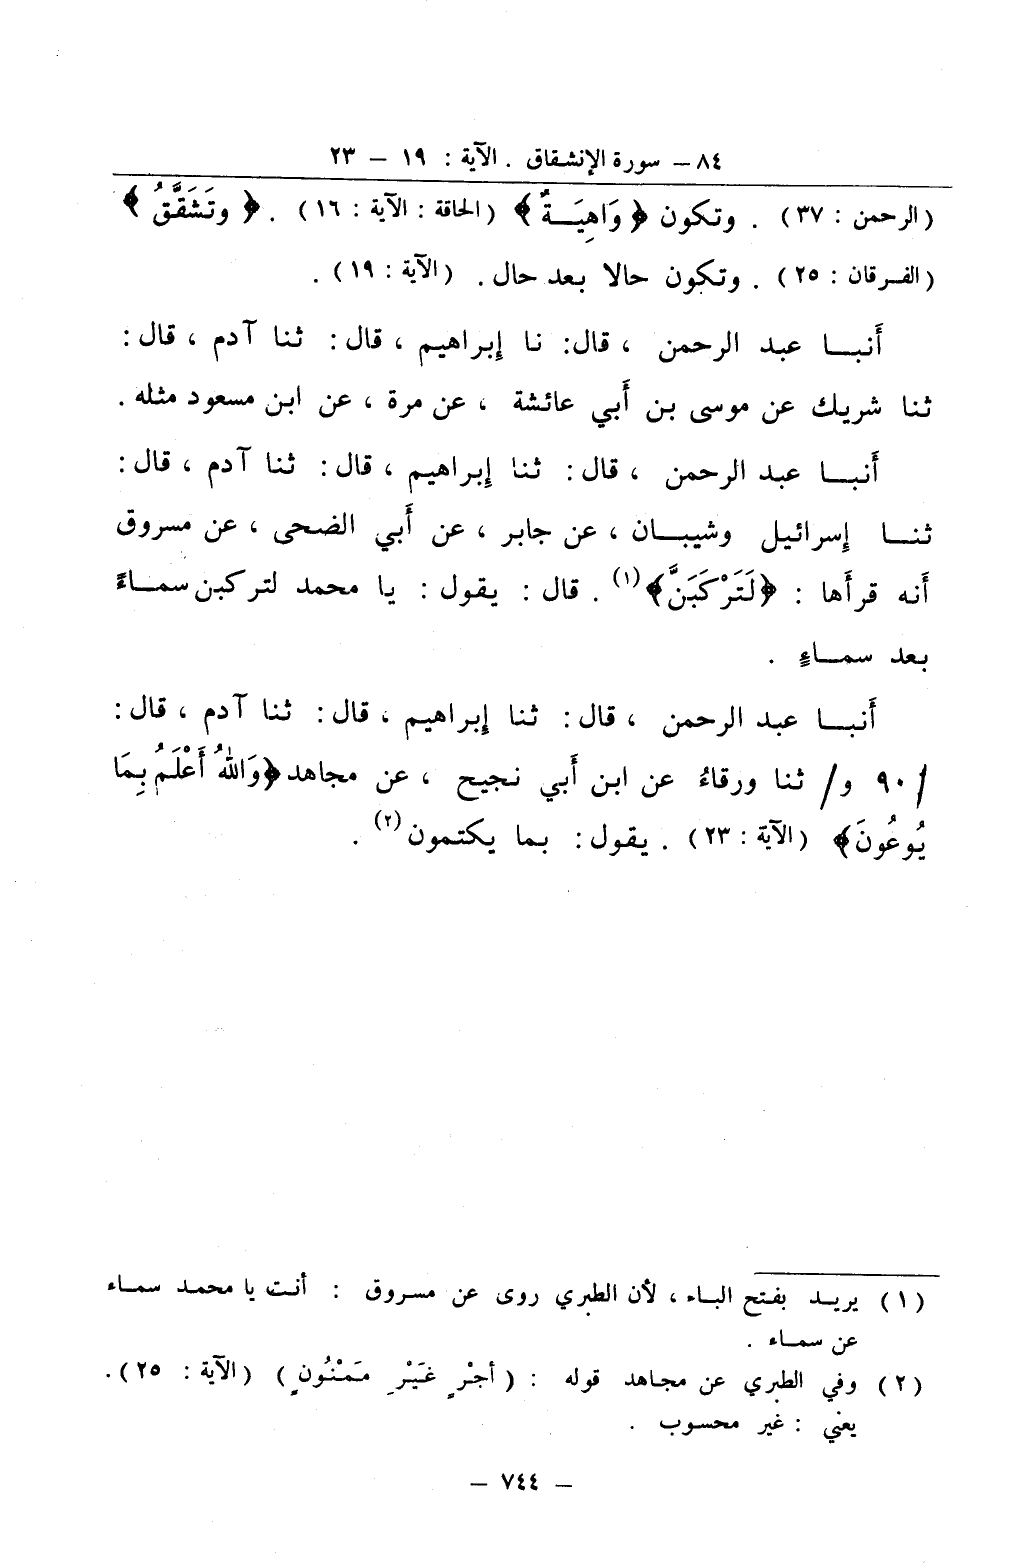 ٨٤ – سورة الإنشقاق . الآية : ١٩ – ٢٣
(الرحمن : ٣٧) . وتكون ﴿وَاهِيَـةٌ﴾ (الحاقة : الآية : ١٦) . ﴿وتَشَقَّقُ﴾
(الفـرقان : ٢٥) . وتكون حالا بعد حال . (الآية : ١٩) .
أَنبـا عبد الرحمن ، قال: نا إبراهيم ، قال: ثنا آدم ، قال:
ثنا شريك عن موسى بن أَبي عائشة ، عن مرة ، عن ابن مسعود مثله .
أَنبـا عبد الرحمن ، قال: ثنا إبراهيم ، قال: ثنا آدم ، قال:
ثنـا إسرائيل وشيبـان ، عن جابر ، عن أَبي الضحى ، عن مسروق
أَنه قرأَها : ﴿لَتَرْكَبَنَّ﴾(١) . قال : يقول : يا محمد لتركبن سمـاءً
بعد سمـاءٍ .
أَنبـا عبد الرحمن ، قال: ثنا إبراهيم ، قال: ثنا آدم ، قال:
/ ٩٠ و/ ثنا ورقاءُ عن ابن أَبي نجيح ، عن مجاهد ﴿وَاللهُ أَعْلَمُ بِمَا
يُوعُونَ﴾ (الآية : ٢٣) . يقول: بما يكتمون(٢) .
(١) يريد بفتح الباء ، لأن الطبري روى عن مسروق : أنت يا محمد سماء
عن سماء .
(٢) وفي الطبري عن مجاهد قوله : (أجْرٍ غَيْرِ مَمْنُونٍ) (الآية : ٢٥).
يعني : غير محسوب .
– ٧٤٤ –